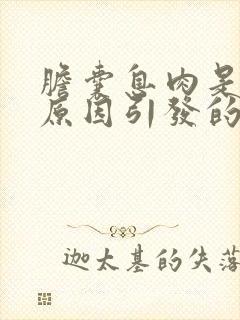 膽囊息肉是
原因引發的
迦太基的失落